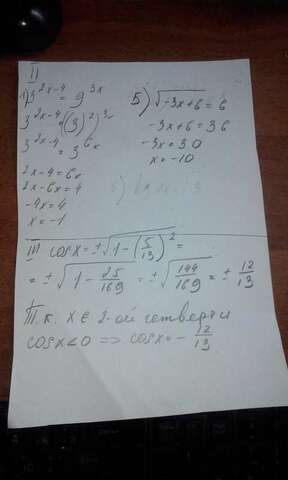 II
1) 3^{2x-4} = 9^{3x}
3^{2x-4} = ((3)^2)^{3x}
3^{2x-4} = 3^{6x}
2x-4=6x
2x-6x=4
-4x=4
x=-1
5) √(-3x+6) = 6
-3x+6=36
-3x=30
x=-10
III cosx=±√(1-(5/13)^2)=
=±√(1-25/169)=±√(144/169)=±12/13
Т.к. x∈ 2-ой четверти
cosx<0 => cosx=-12/13